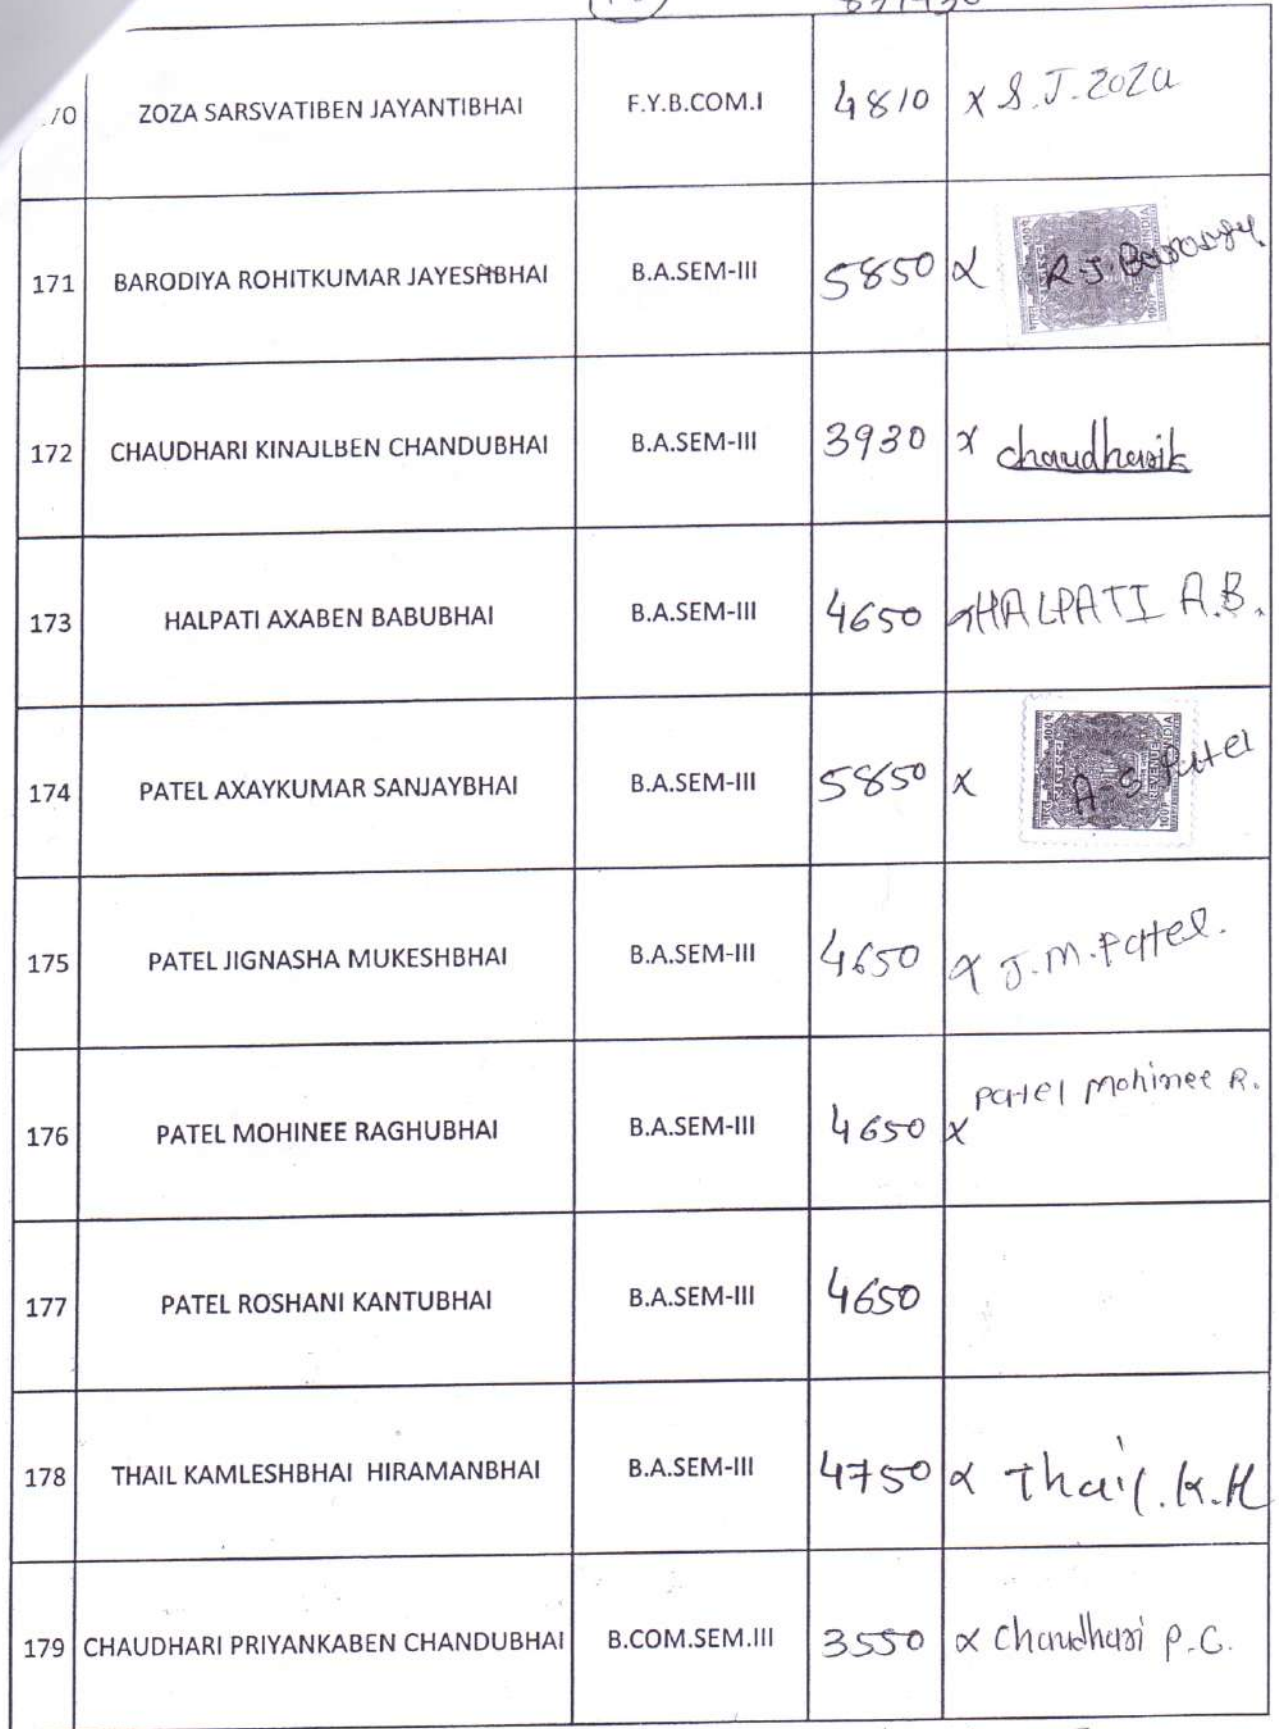 70 ZOZA SARSVATIBEN JAYANTIBHAI F.Y.B.COM.I 4810 x S.J.Zoza
171 BARODIYA ROHITKUMAR JAYESHBHAI B.A.SEM-III 5850 x R.J.
172 CHAUDHARI KINAJLBEN CHANDUBHAI B.A.SEM-III 3930 x chaudharik
173 HALPATI AXABEN BABUBHAI B.A.SEM-III 4650 x HALPATI A.B.
174 PATEL AXAYKUMAR SANJAYBHAI B.A.SEM-III 5850 x A-S Patel
REVENUE INDIA
175 PATEL JIGNASHA MUKESHBHAI B.A.SEM-III 4650 x J.M.Patel.
176 PATEL MOHINEE RAGHUBHAI B.A.SEM-III 4650 x Patel Mohinee R.
177 PATEL ROSHANI KANTUBHAI B.A.SEM-III 4650
178 THAIL KAMLESHBHAI HIRAMANBHAI B.A.SEM-III 4750 x Thail.K.H
179 CHAUDHARI PRIYANKABEN CHANDUBHAI B.COM.SEM.III 3550 x Chaudhari P.C.